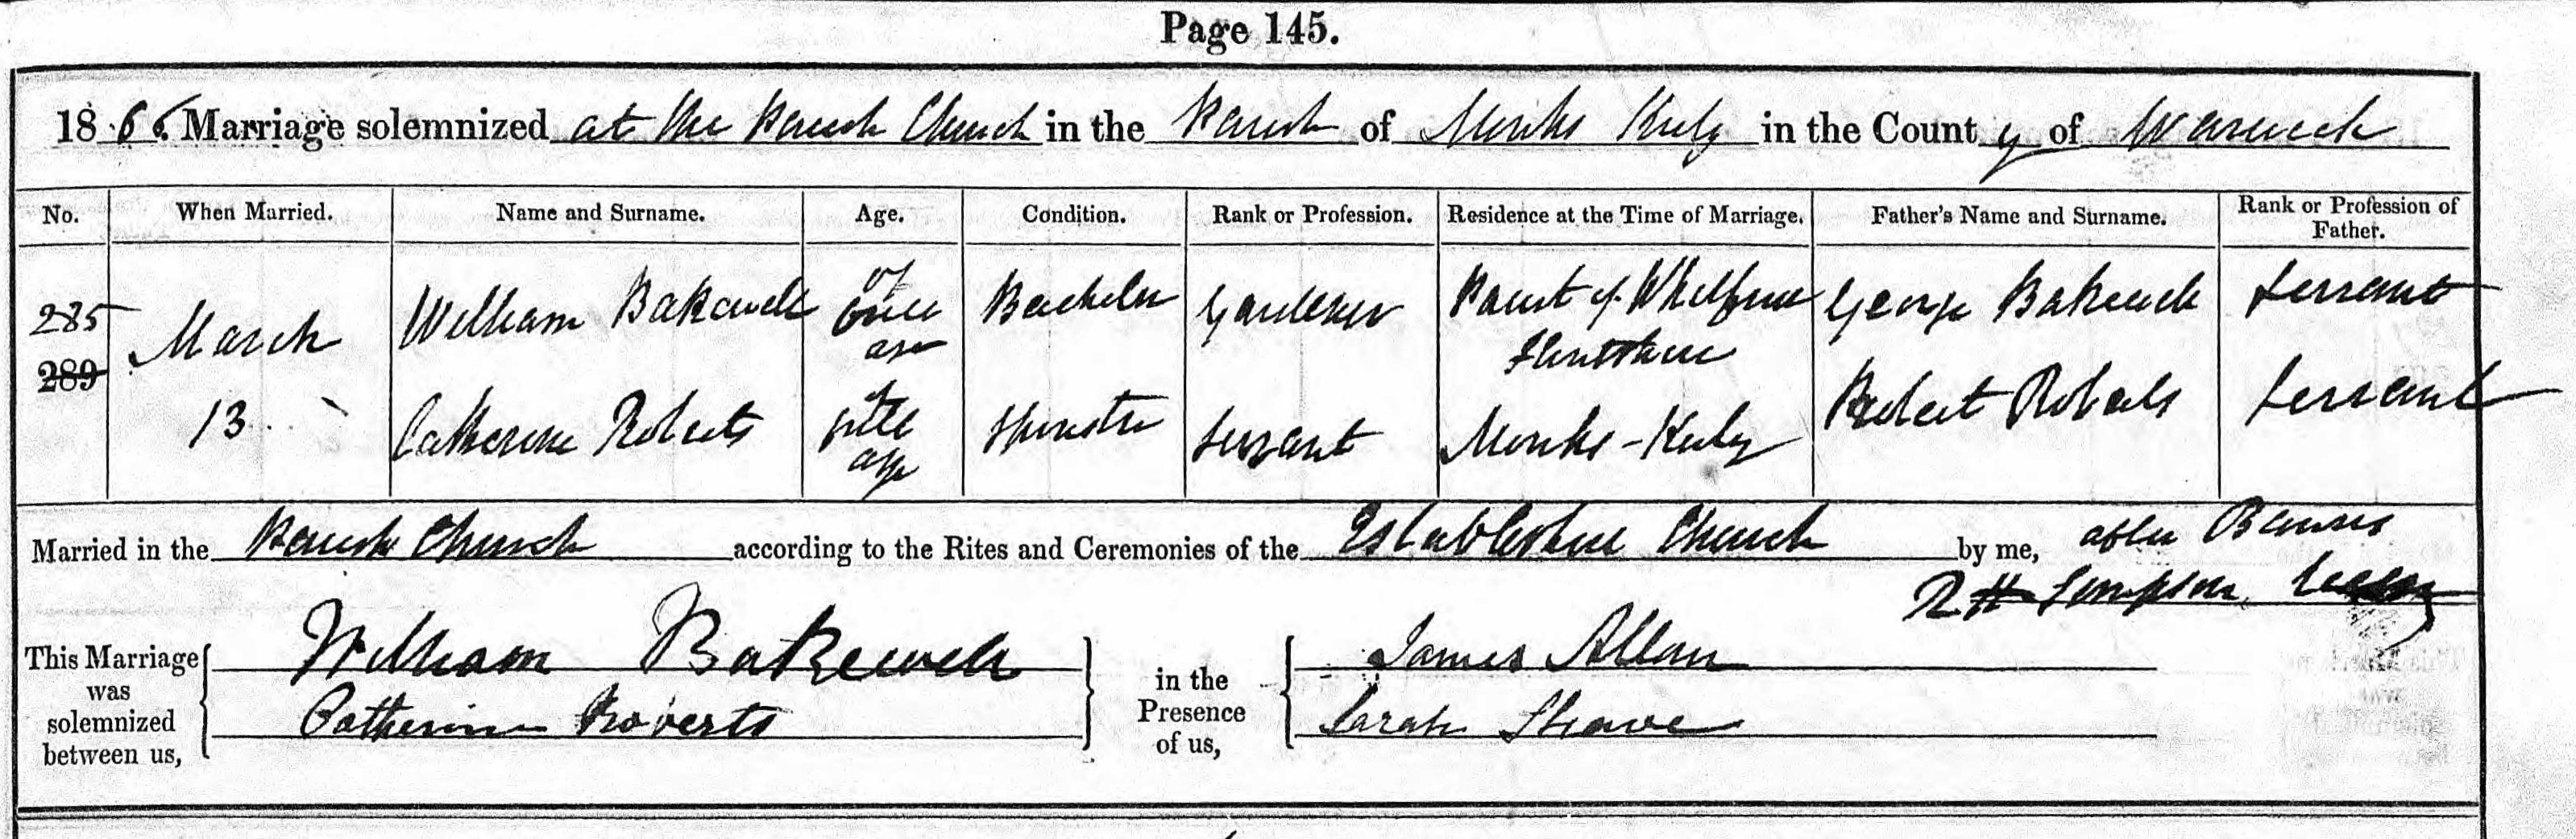 Page 145.
1866. Marriage solemnized at the Parish Church in the Parish of Monks Kirby in the County of Warwick
No. When Married. Name and Surname. Age. Condition. Rank or Profession. Residence at the Time of Marriage. Father's Name and Surname. Rank or Profession of Father.
285 March William Bakewell of full age Bachelor Gardener Parish of Flintshire George Bakewell Servant
289
13 Catherine Roberts of full age Spinster Servant Monks-Kirby Robert Roberts Servant
Married in the Parish Church according to the Rites and Ceremonies of the Established Church by me, after Banns
R H Simpson
This Marriage was solemnized between us, William Bakewell in the Presence of us, James Allan
Catherine Roberts Sarah